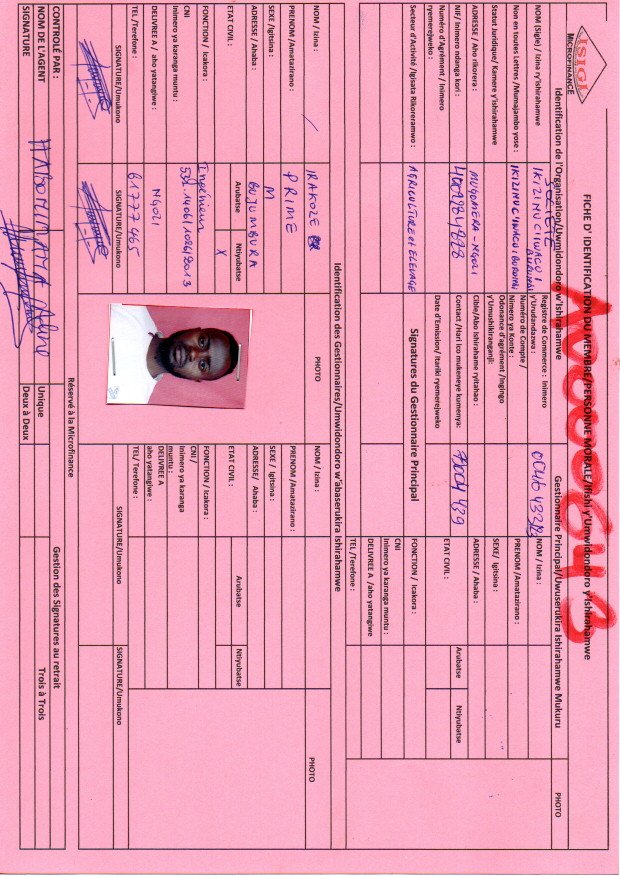 ISIGI
MICROFINANCE
FICHE D' IDENTIFICATION DU MEMBRE/PERSONNE MORALE/Ifishi y'Umwidondoro y'Ishirahamwe
Identification de l'Organisation/Uwmidondoro w'Ishirahamwe
Gestionnaire Principal/Uwuserukira Ishirahamwe Mukuru
PHOTO
NOM (Sigle) / Izina ry'ishirahamwe
SOCIETE
IKIZINU CY'WACU I
BURUNDI
Non en toutes Lettres /Mumajambo yose :
IKIZINU CY'WACU I BURUNDI
Statut Juridique/ Kamere y'ishirahamwe
ADRESSE / Aho rikorera :
MUGOMERA - NGOLI
NIF/ Inimero ndanga kori :
Numéro d'Agrément / Inimero
ryemerejweko :
Secteur d'Activité /Igisata Rikoreramwo :
AGRICULTURE et ELEVAGE
Registre de Commerce : Inimero
y'Urudandazwa :
Numéro de Compte /
Nimero ya Konte :
Odonance d'agrément /Ingingo
y'Umushikiranganji:
Cible/Abo Ishirahame ryitaho :
Contact /Hari ico mukeneye kumenya:
Date d'Emission/ Itariki ryemerejweko
NOM / Izina :
PRENOM /Amatazirano :
SEXE/ Igitsina :
ADRESSE / Ahaba :
ETAT CIVIL :
Arubatse
Ntiyubatse
FONCTION / Icakora :
CNI
Inimero ya karanga muntu :
DELIVREE A /aho yatangiwe
TEL /Terefone :
Signatures du Gestionnaire Principal
Identification des Gestionnaires/Umwidondoro w'abaserukira Ishirahamwe
NOM / Izina :
IRAKOZE
PHOTO
PRENOM /Amatazirano :
PRIME
SEXE /Igitsina :
M
ADRESSE / Ahaba :
BUJUMBURA
ETAT CIVIL :
Arubatse
Ntiyubatse
X
FONCTION / Icakora :
Ingénieur
CNI
Inimero ya karanga muntu :
DELIVREE A / aho yatangiwe :
NGOLI
TEL /Terefone :
61777465
SIGNATURE/Umukono
SIGNATURE/Umukono
NOM / Izina :
PHOTO
PRENOM /Amatazirano :
SEXE / Igitsina :
ADRESSE/ Ahaba :
ETAT CIVIL :
Arubatse
Ntiyubatse
FONCTION / Icakora :
CNI /
Inimero ya karanga
muntu :
DELIVREE A
aho yatangiwe :
TEL/ Terefone :
SIGNATURE/Umukono
SIGNATURE/Umukono
Reservé à la Microfinance
CONTROLÉ PAR :
NOM DE L'AGENT
HABONIMANA Aline
SIGNATURE
Gestion des Signatures au retrait
Unique
Deux à Deux
Trois à Trois